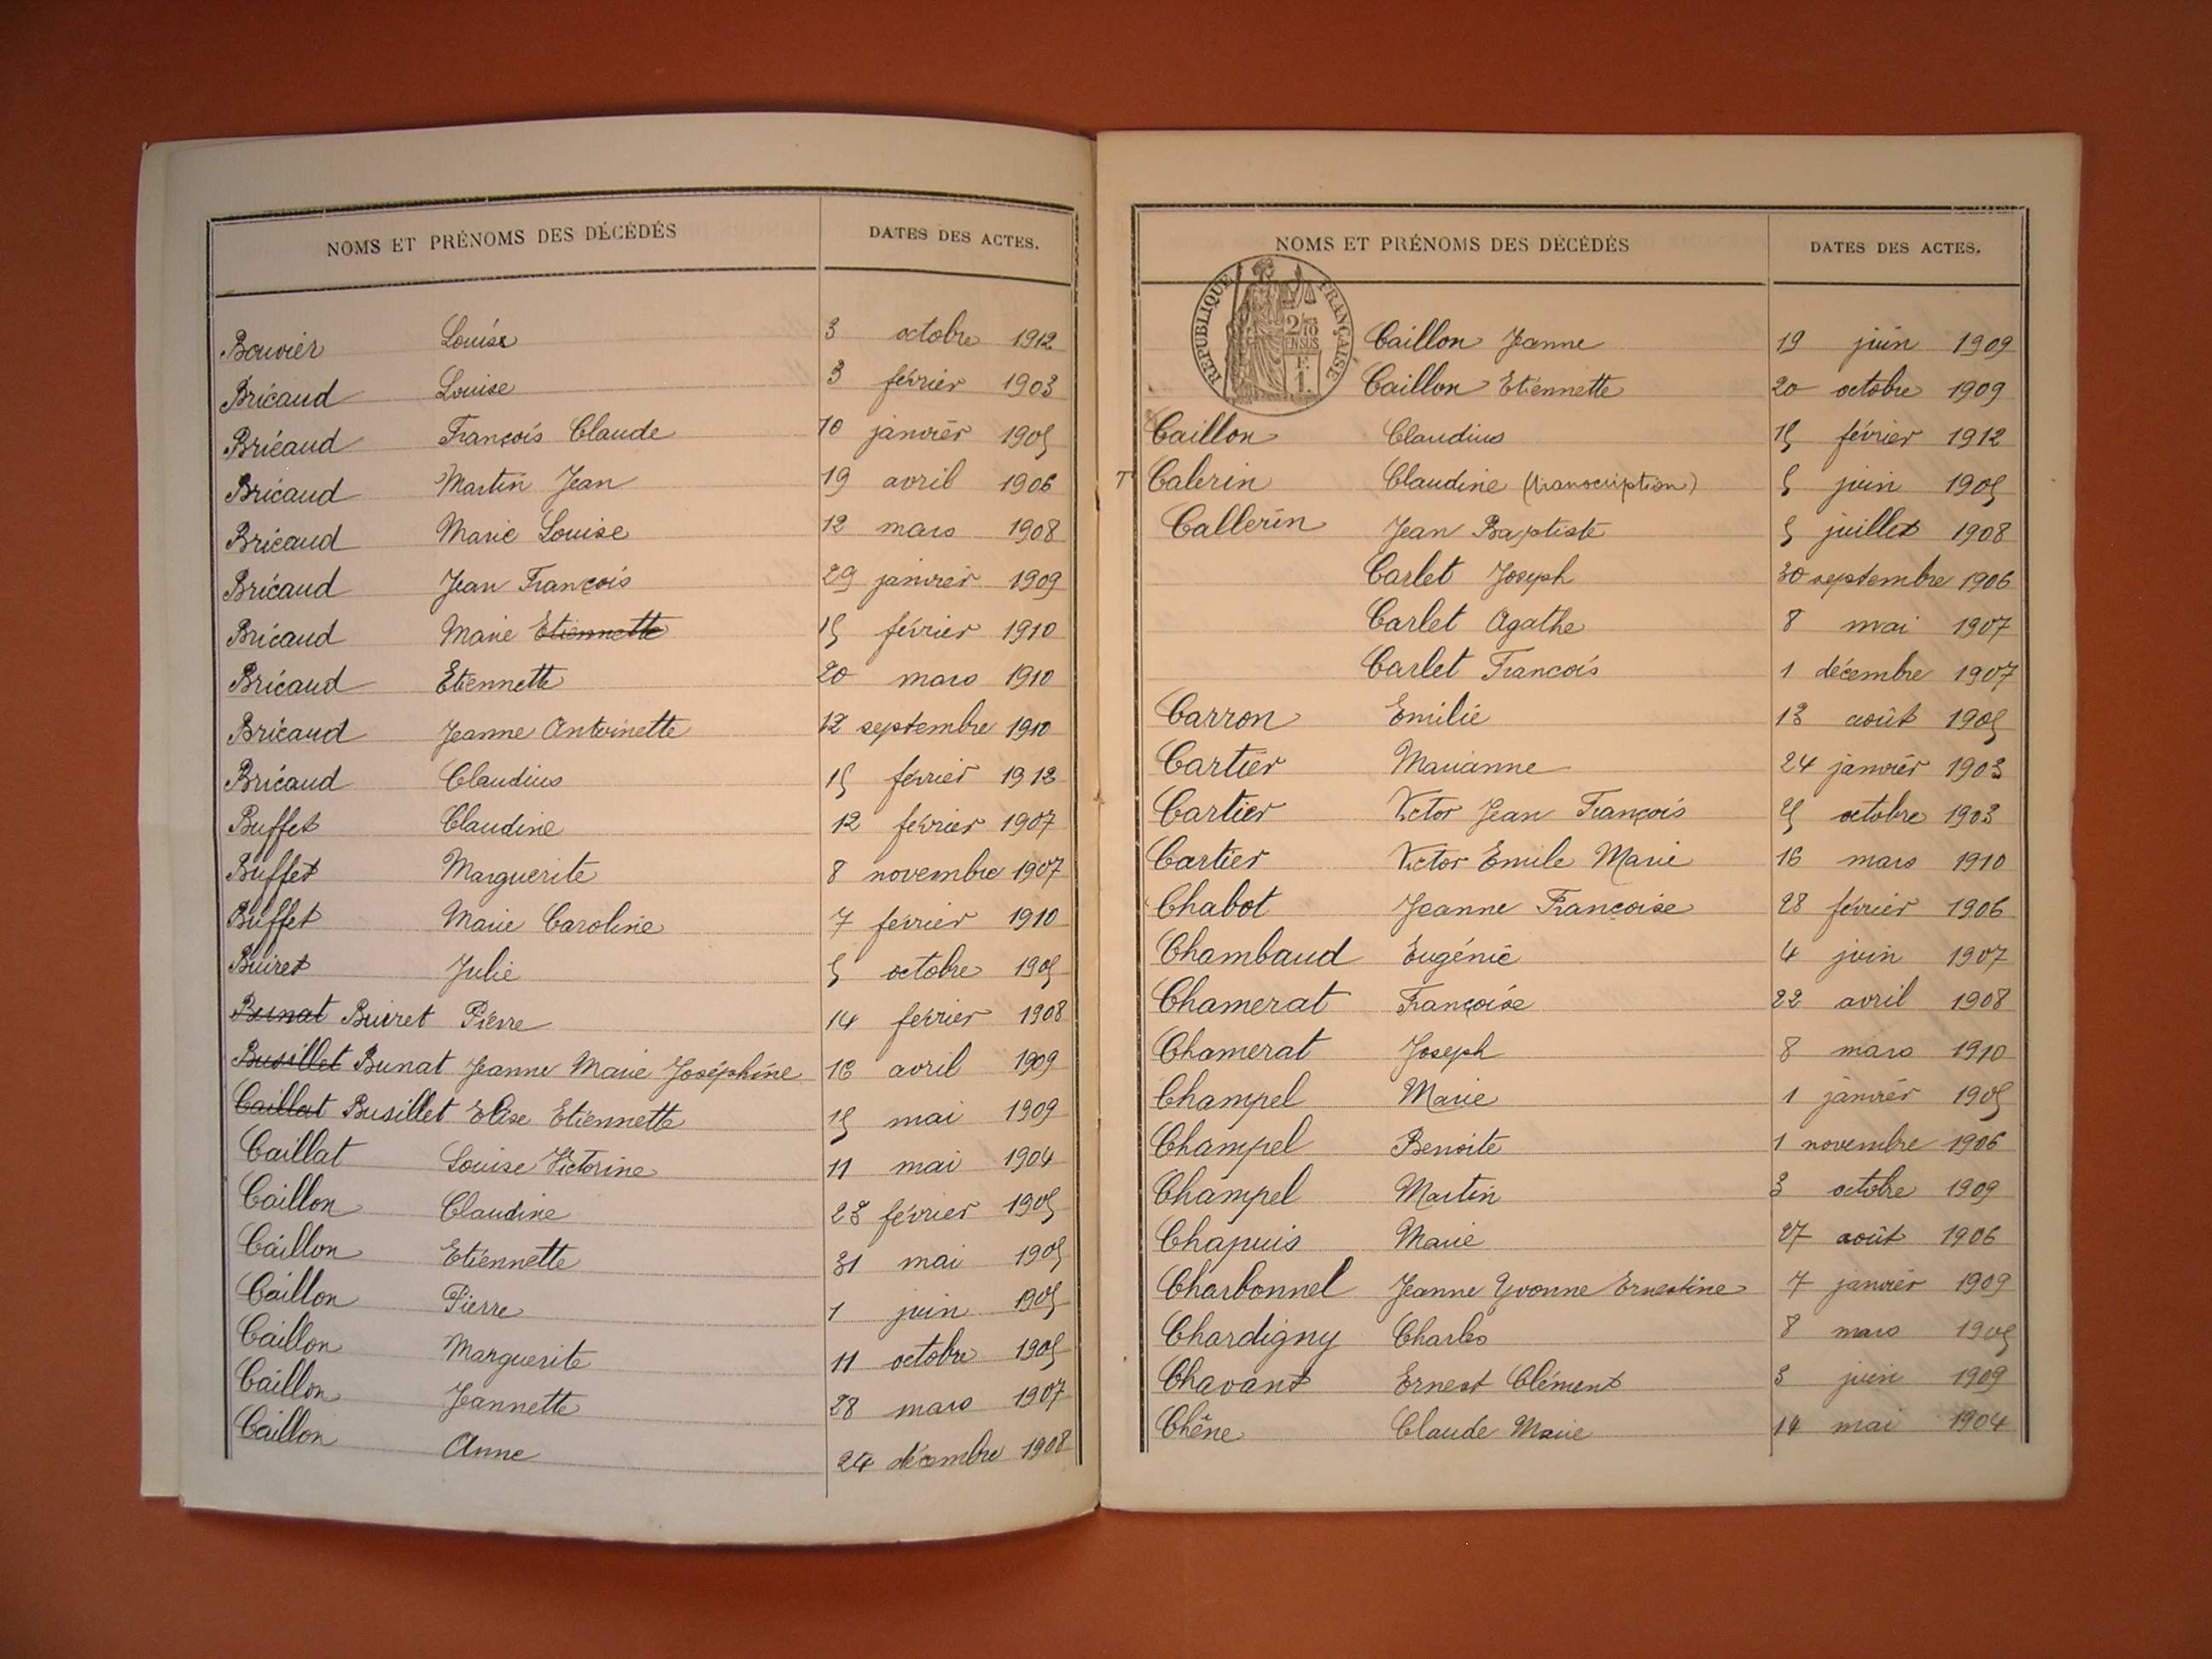 NOMS ET PRÉNOMS DES DÉCÉDÉS DATES DES ACTES.
Bouvier Louise 3 octobre 1912
Bricaud Louise 3 février 1903
Bricaud François Claude 10 janvier 1905
Bricaud Martin Jean 19 avril 1906
Bricaud Marie Louise 12 mars 1908
Bricaud Jean François 29 janvier 1909
Bricaud Marie Etiennette 15 février 1910
Bricaud Etiennette 20 mars 1910
Bricaud Jeanne Antoinette 12 septembre 1910
Bricaud Claudius 15 février 1912
Buffet Claudine 12 février 1907
Buffet Marguerite 8 novembre 1907
Buffet Marie Caroline 7 février 1910
Buiret Julie 5 octobre 1905
Bunat Buiret Pierre 14 février 1908
Busillet Bunat Jeanne Marie Joséphine 16 avril 1909
Caillat Busillet Elise Etiennette 15 mai 1909
Caillat Louise Victorine 11 mai 1904
Caillon Claudine 23 février 1905
Caillon Etiennette 31 mai 1905
Caillon Pierre 1 juin 1905
Caillon Marguerite 11 octobre 1905
Caillon Jeannette 28 mars 1907
Caillon Anne 24 décembre 1908
NOMS ET PRÉNOMS DES DÉCÉDÉS DATES DES ACTES.
RÉPUBLIQUE FRANÇAISE
2/10
EN SUS
F.
1.
Caillon Jeanne 19 juin 1909
Caillon Etiennette 20 octobre 1909
Caillon Claudius 15 février 1912
T Calerin Claudine (transcription) 5 juin 1905
Callerin Jean Baptiste 5 juillet 1908
Carlet Joseph 30 septembre 1906
Carlet Agathe 8 mai 1907
Carlet Francois 1 décembre 1907
Carron Emilie 13 août 1905
Cartier Marianne 24 janvier 1903
Cartier Victor Jean François 25 octobre 1903
Cartier Victor Emile Marie 16 mars 1910
Chabot Jeanne Françoise 28 février 1906
Chambaud Eugénie 4 juin 1907
Chamerat Françoise 22 avril 1908
Chamerat Joseph 8 mars 1910
Champel Marie 1 janvier 1905
Champel Benoite 1 novembre 1906
Champel Martin 3 octobre 1909
Chapuis Marie 27 août 1906
Charbonnel Jeanne Yvonne Ernestine 7 janvier 1909
Chardigny Charles 8 mars 1905
Chavant Ernest Clément 3 juin 1909
Chêne Claude Marie 14 mai 1904